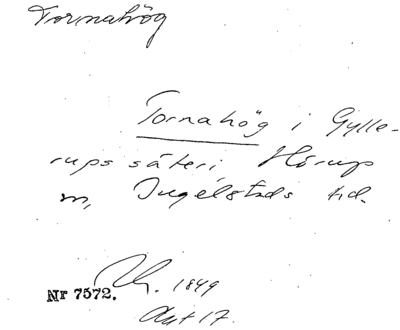 Tornahög
Tornahög i Gylle-
rups säteri, Hörups
m, Ingelstads hd.
1849
Nr 7572.
Akt 17.